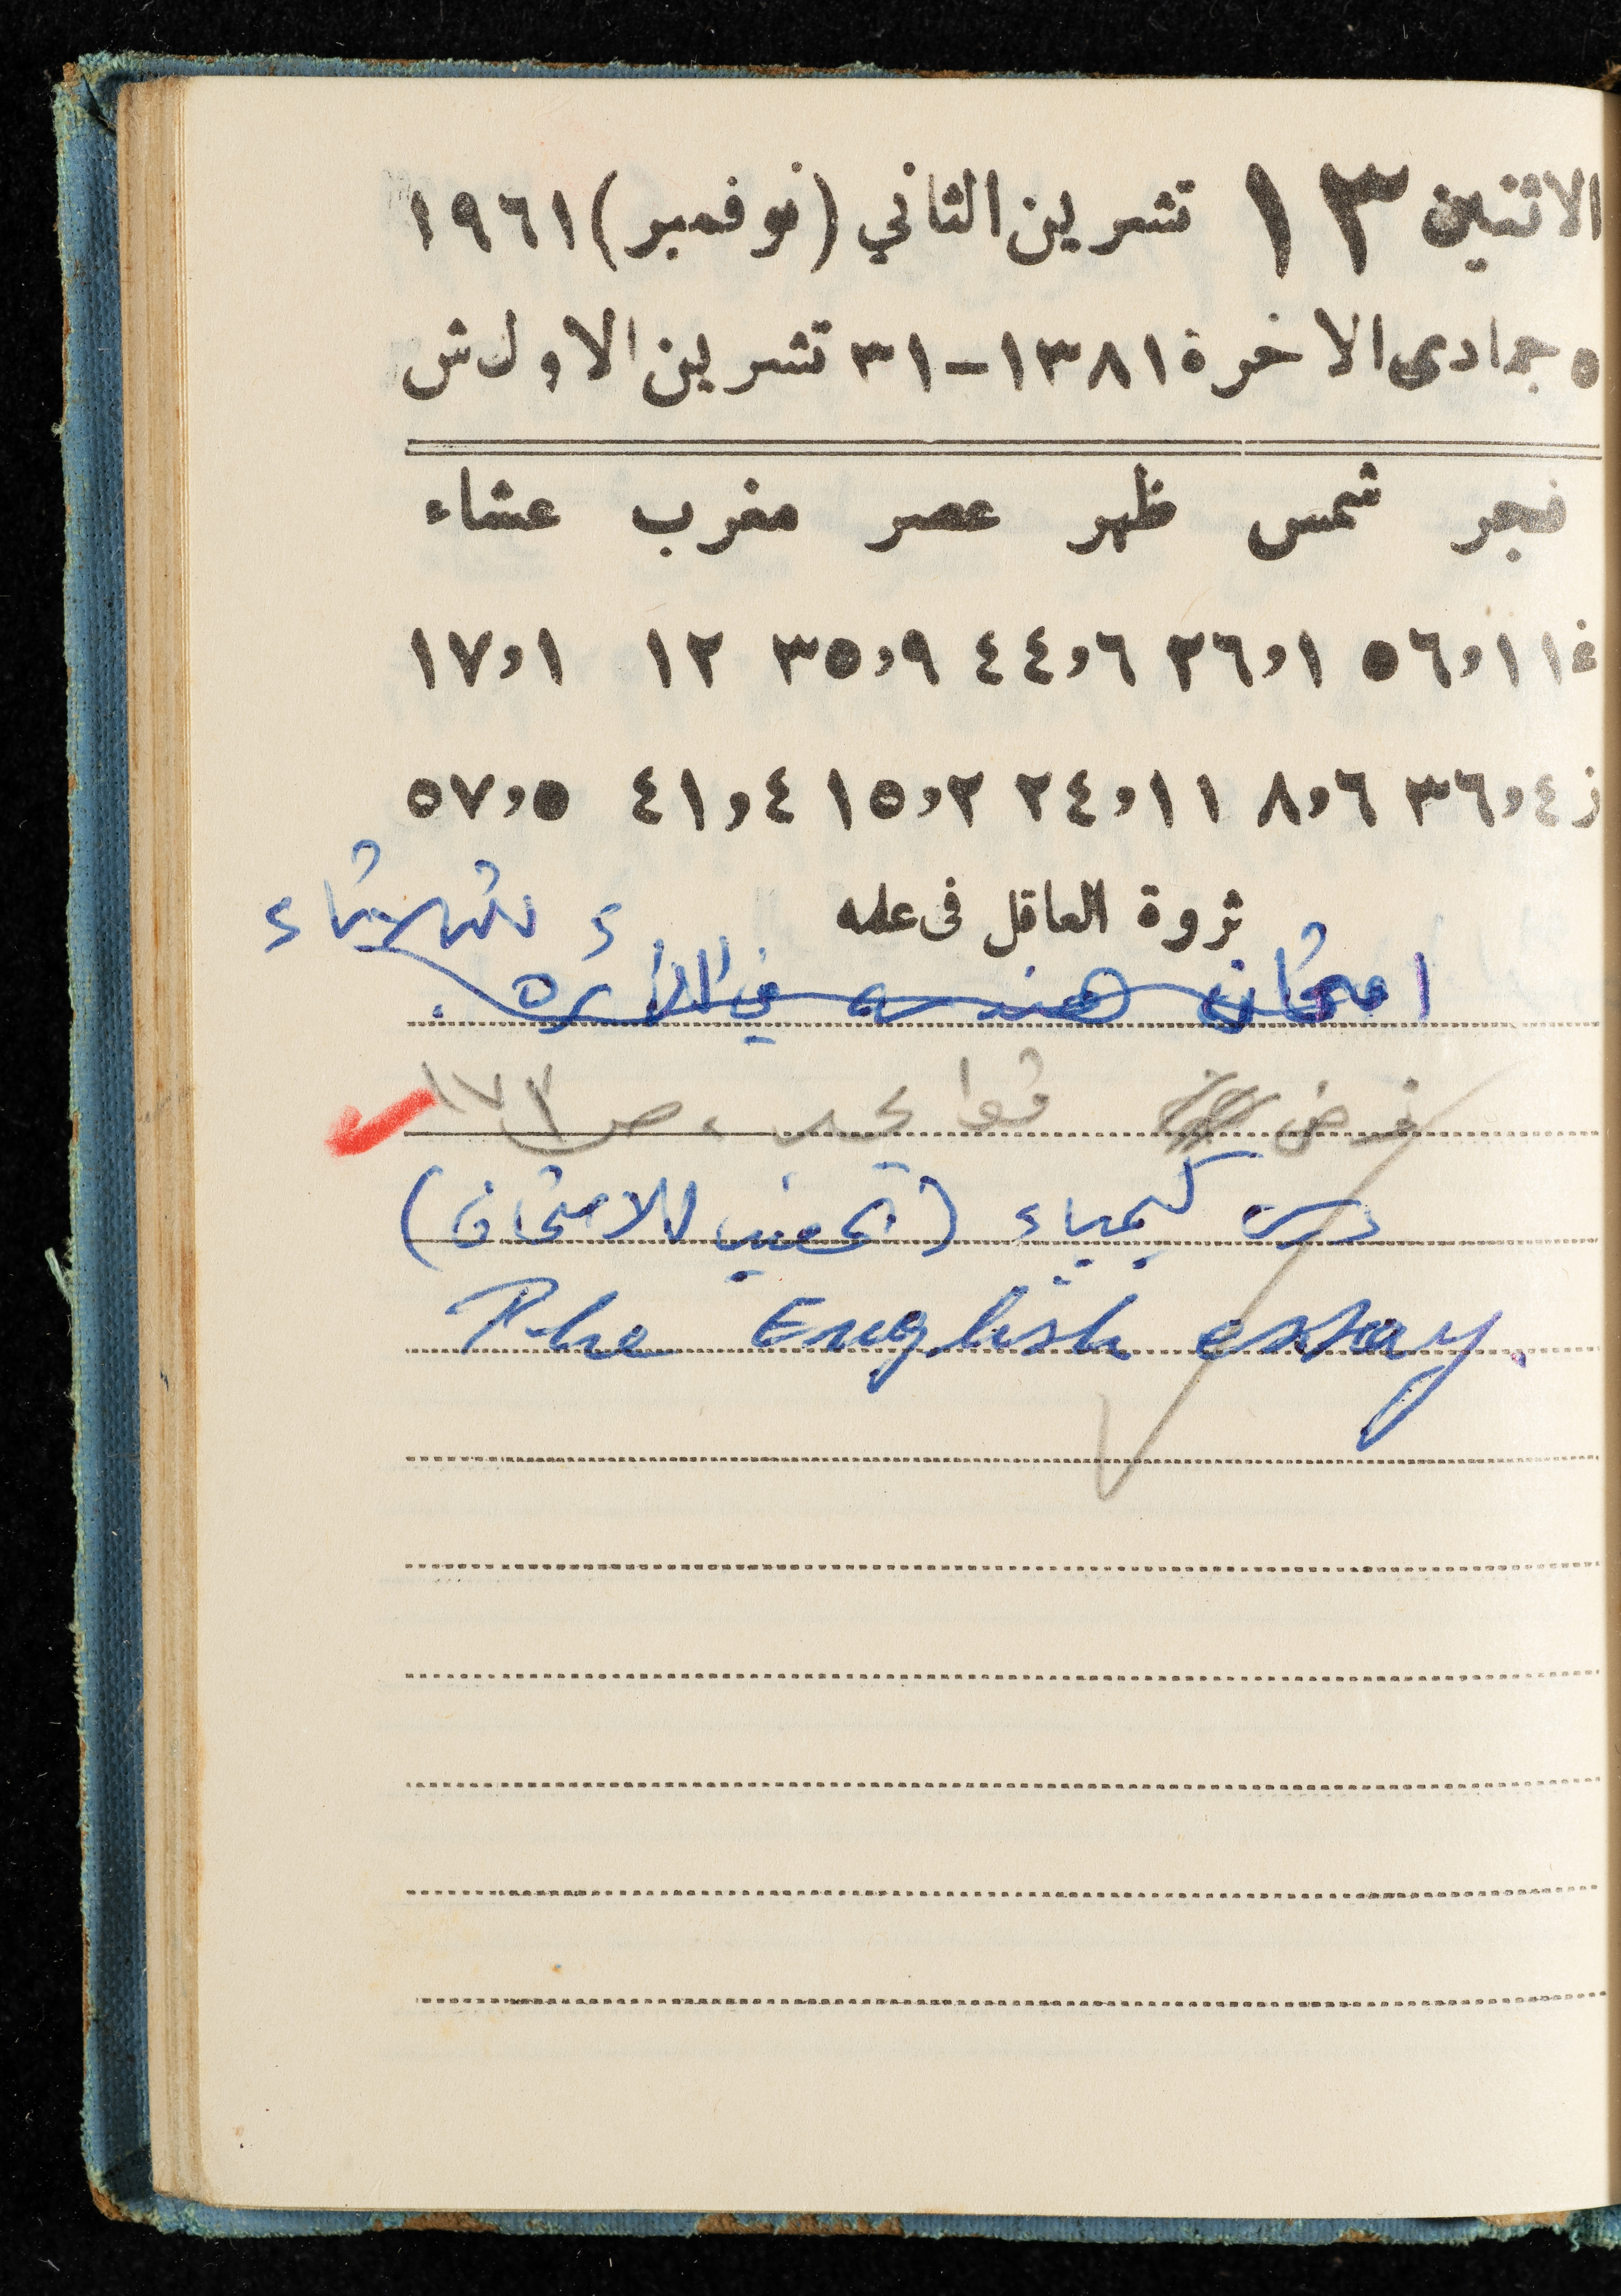 الاثنين ١٣ تشرين الثاني (نوفمبر) ١٩٦١
٥ جمادى الاخرة ١٣٨١ - ٣١ تشرين الاول ش
فجر شمس ظهر عصر مغرب عشاء
غ ١١,٥٦ ١,٢٦ ٦,٤٤ ٩,٣٥ ١٢ ١,١٧
ز ٤,٣٦ ٦,٨ ١١,٢٤ ٢,١٥ ٤,٤١ ٥,٥٧
ثروة العاقل في علمه
امتحان هندسه في الدائره.
فرض قواعد، ص ١٧٢
درس كيمياء (تحضير للامتحان)
The English essay.